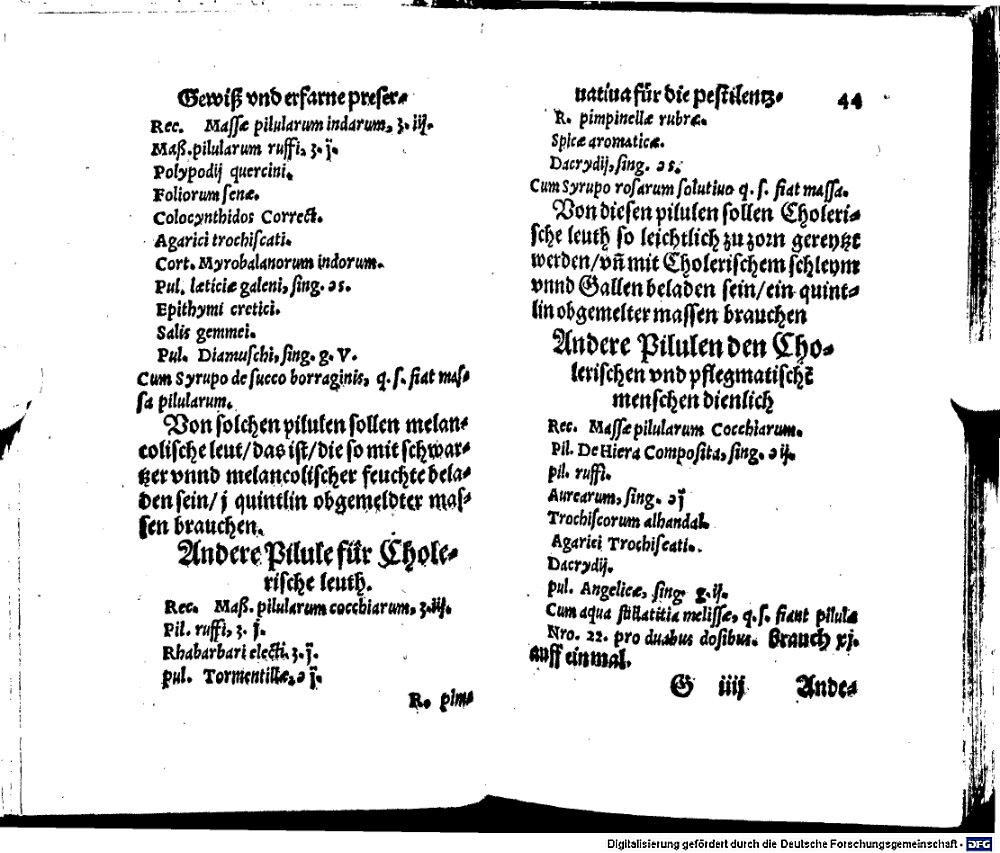 Gewiß vnd erfarne preser⸗
Rec. Massæ pilularum indarum, ʒ. iij.
Maß. pilularum ruffi, ʒ. j.
Polypodij quercini.
Foliorum senæ.
Colocynthidos Correct.
Agarici trochiscati.
Cort. Myrobalanorum indorum.
Pul. læticiæ galeni, sing. ℈ s.
Epithymi cretici.
Salis gemmei.
Pul. Diamuschi, sing. g. V.
Cum Syrupo de succo borraginis, q. s. fiat mas⸗
sa pilularum.
Von solchen pilulen sollen melan⸗
colische leut/das ist/die so mit schwar⸗
tzer vnnd melancolischer feuchte bela⸗
den sein/j quintlin obgemeldter mas⸗
sen brauchen.
Andere Pilule für Chole⸗
rische leuth.
Rec. Maß. pilularum cocchiarum, ʒ. iij.
Pil. ruffi, ʒ. j.
Rhabarbari electi. ʒ. j.
pul. Tormentillæ, ℈ j.
R. pim⸗
uatiua für die pestilentz⸗ 44
R. pimpinellæ rubræ.
Spicæ aromaticæ.
Dacrydij, sing. ℈ s.
Cum Syrupo rosarum solutiuo q. s. fiat massa.
Von diesen pilulen sollen Choleri⸗
sche leuth so leichtlich zu zorn gereytzt
werden/vn̄ mit Cholerischem schleym
vnnd Gallen beladen sein/ein quint⸗
lin obgemelter massen brauchen
Andere Pilulen den Cho⸗
lerischen vnd pflegmatischē
menschen dienlich
Rec. Massæ pilularum Cocchiarum.
Pil. De Hiera Composita, sing. ℈ ij.
pil. ruffi.
Aurearum, sing. ℈ j
Trochiscorum alhandal.
Agarici Trochiscati.
Dacrydij.
pul. Angelicæ, sing. g. ij.
Cum aqua stillatitia melissæ, q. s. fiant pilulæ
Nro. 22. pro duabus dosibus. Brauch xj.
auff einmal.
G iiij Ande⸗
Digitalisierung gefördert durch die Deutsche Forschungsgemeinschaft - DFG